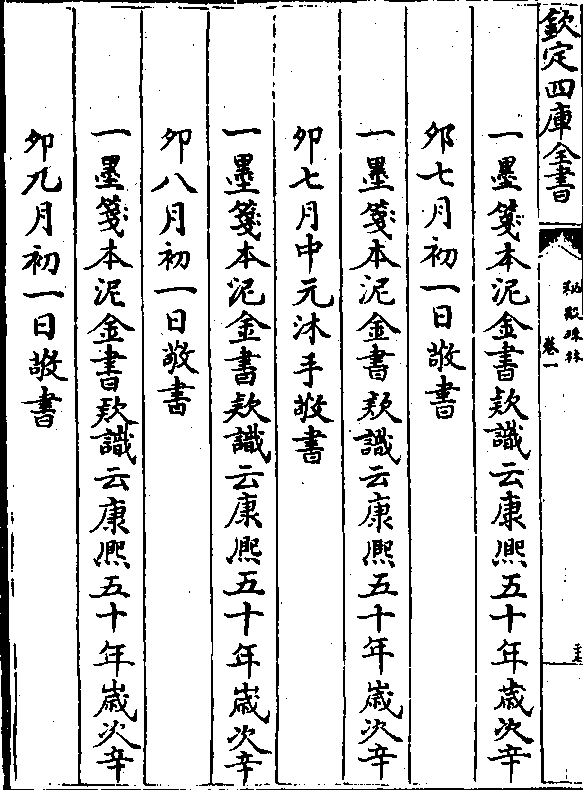 欽定四庫全書
秘殿珠林
卷一
一墨箋本泥金書款識云康熙五十年歲次辛
卯七月初一日敬書
一墨箋本泥金書款識云康熙五十年歲次辛
卯七月中元沐手敬書
一墨箋本泥金書款識云康熙五十年歲次辛
卯八月初一日敬書
一墨箋本泥金書款識云康熙五十年歲次辛
卯九月初一日敬書